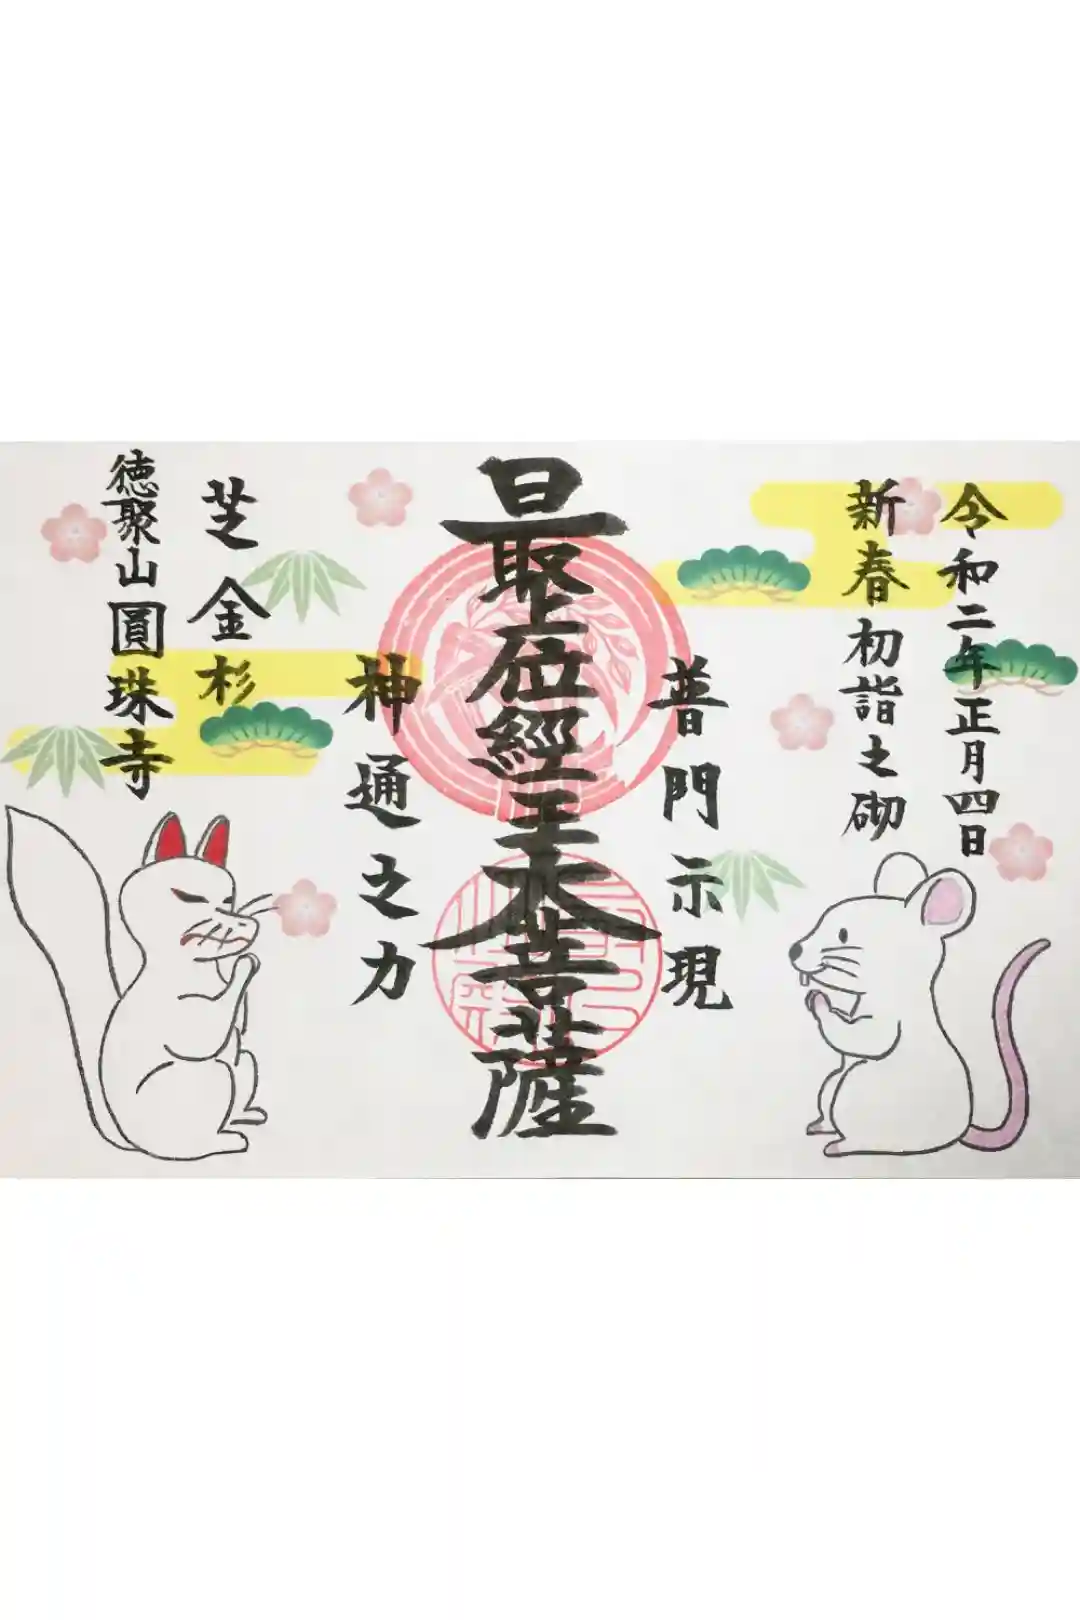 令和二年正月四日
新春初詣之砌
普門示現
最上位經王大菩薩
神通之力
芝金杉
徳聚山圓珠寺